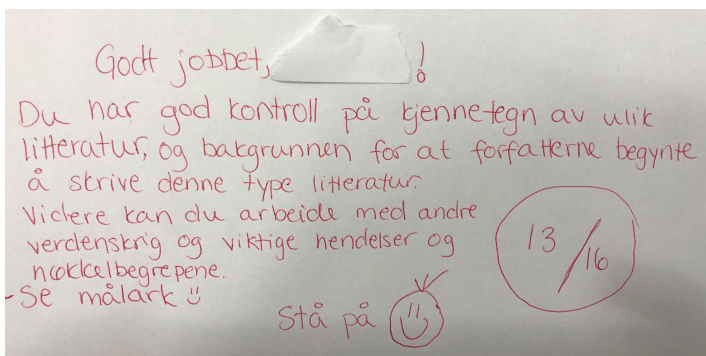 Godt jobbet, !
Du har god kontroll på kjennetegn av ulik
litteratur, og bakgrunnen for at forfatterne begynte
å skrive denne type litteratur.
Videre kan du arbeide med andre
verdenskrig og viktige hendelser og
nøkkelbegrepene.
- Se målark ü
13/16
Stå på